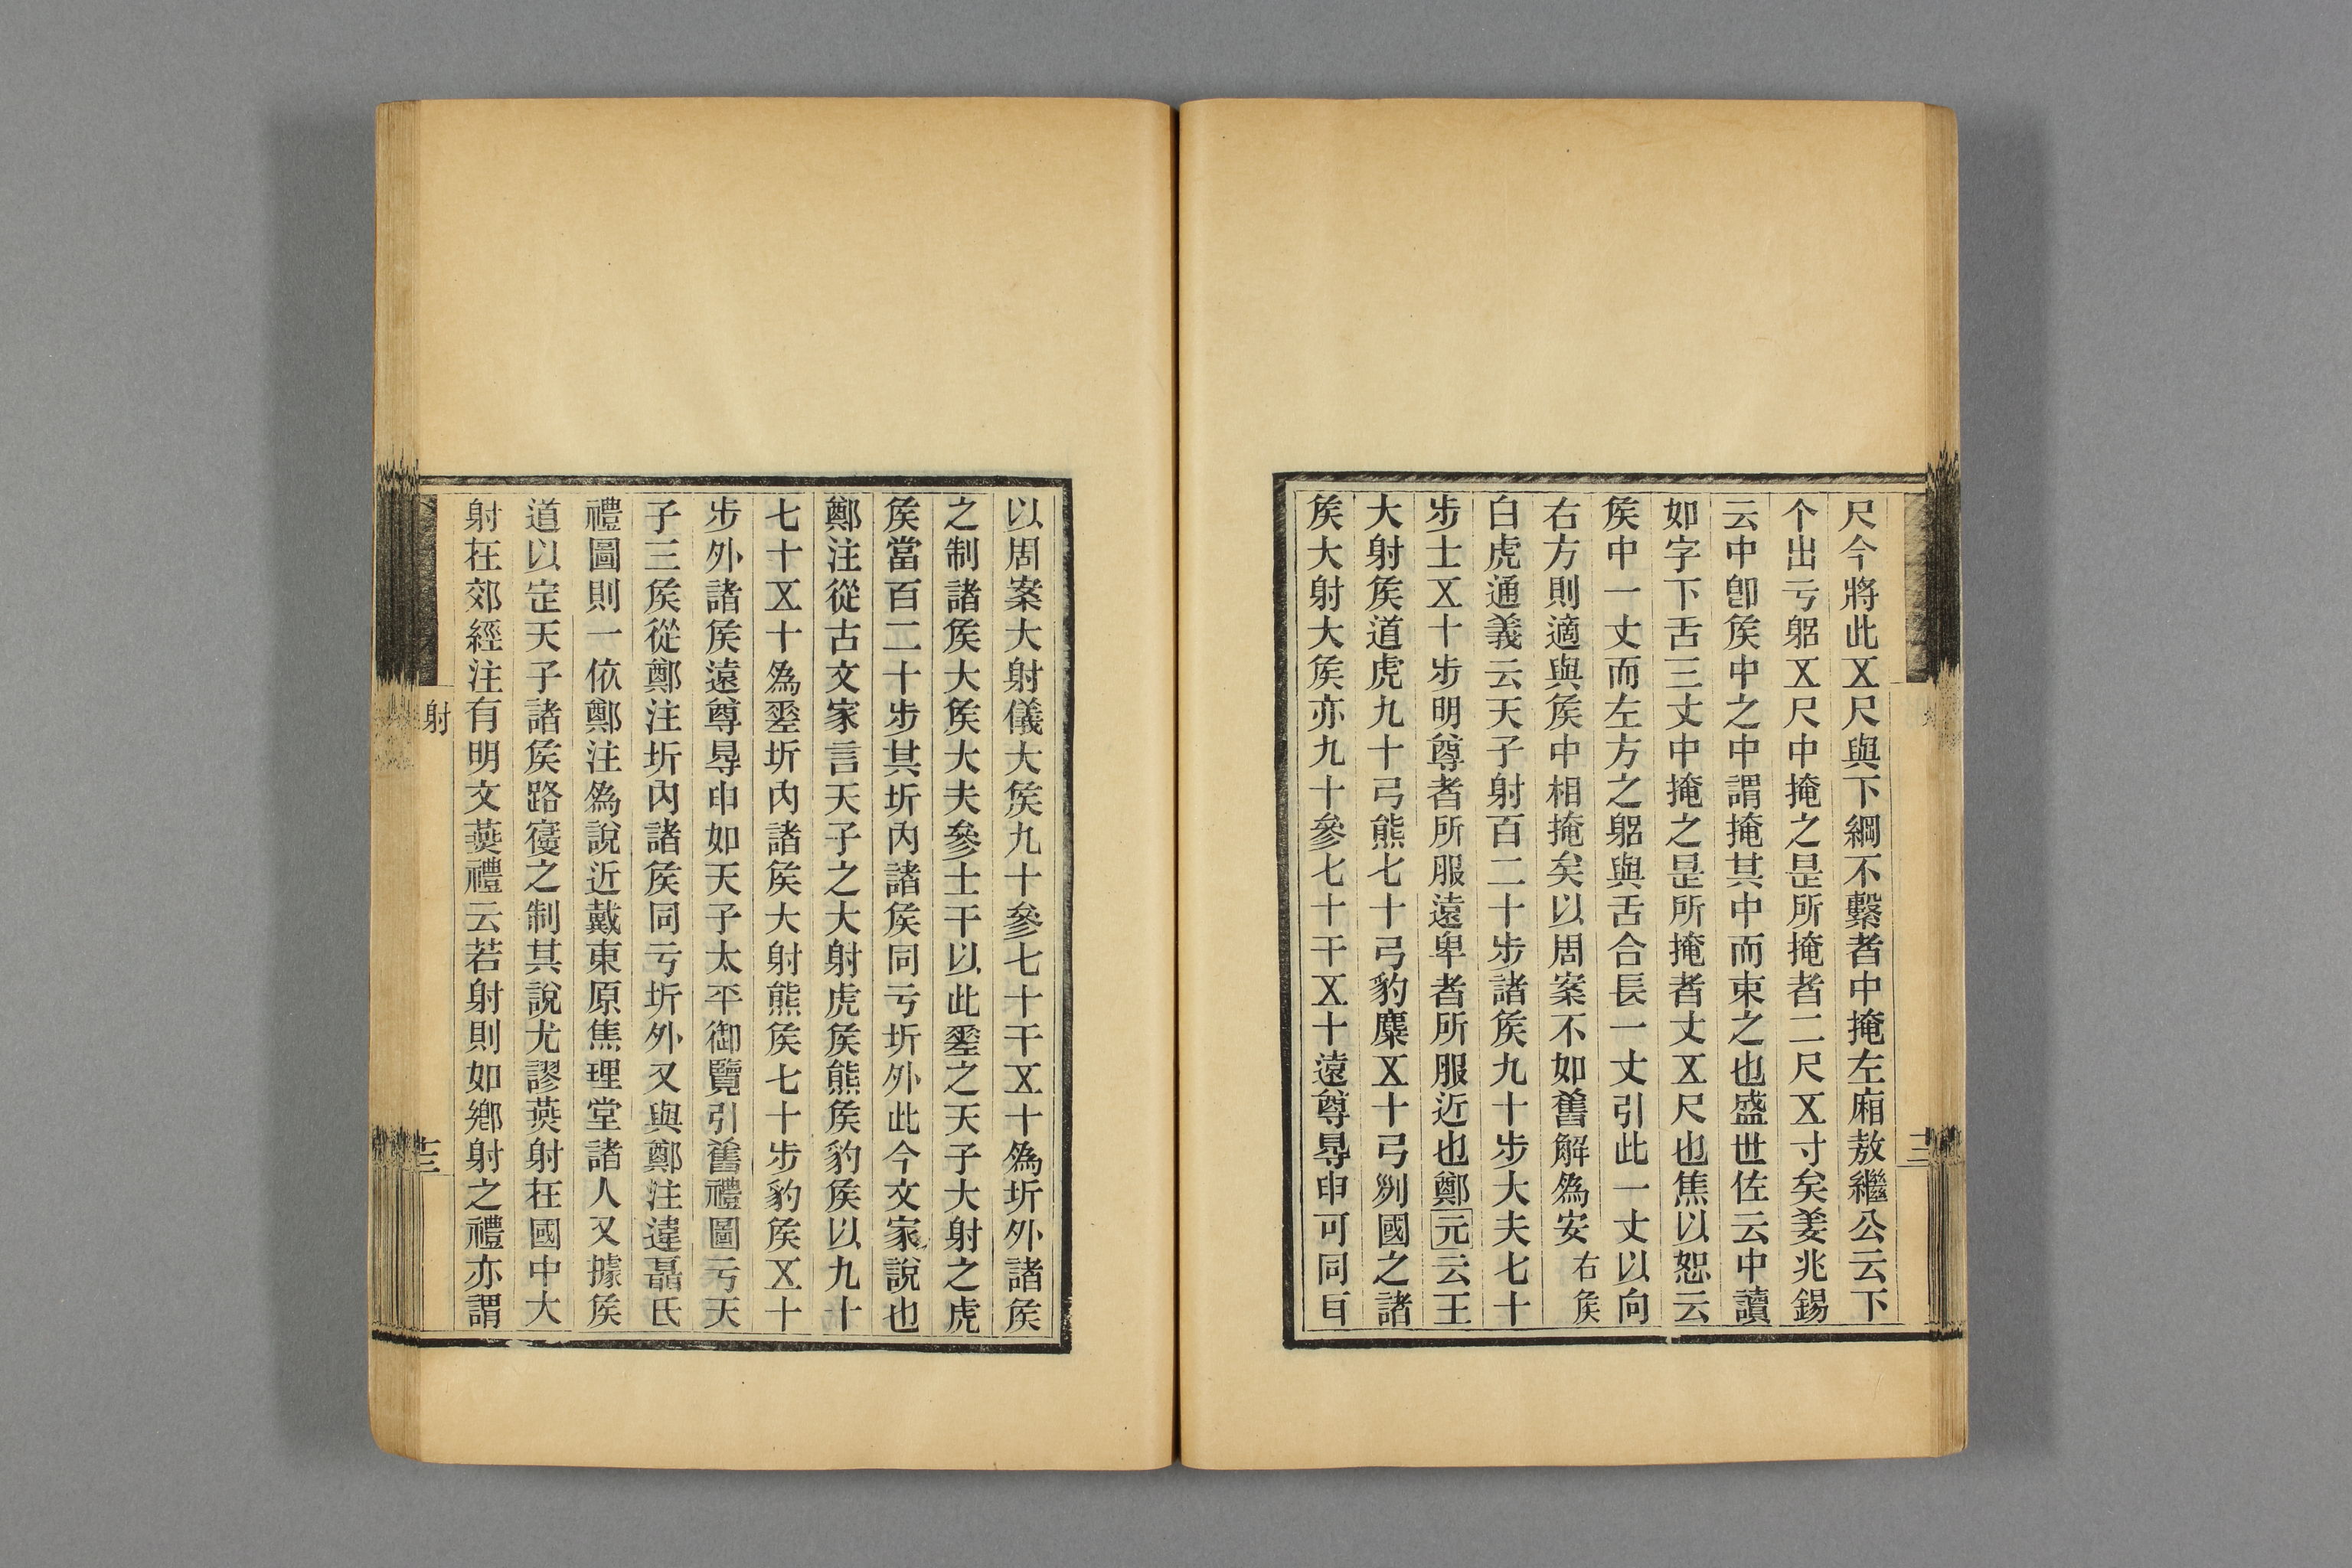 尺今將此㐅尺與下綱不繫者中掩左廂敖繼公云下
个出亏躳㐅尺中掩之昰所掩者二尺㐅寸矣姜兆錫
云中卽矦中之中謂掩其中而束之也盛世佐云中讀
如字下舌三丈中掩之昰所掩者丈㐅尺也焦以恕云
矦中一丈而左方之躳與舌合長一丈引此一丈以向
右方則適與矦中相掩矣以周案不如舊解爲安 右矦
白虎通義云天子射百二十步諸矦九十步大夫七十
步士㐅十步明尊者所服遠卑者所服近也鄭元云王
大射矦道虎九十弓熊七十弓豹麋㐅十弓𠛱國之諸
矦大射大矦亦九十參七十干㐅十遠尊㝵申可同目
以周案大射儀大矦九十參七十干㐅十爲圻外諸矦
之制諸矦大矦大夫參士干以此𨤲之天子大射之虎
矦當百二十步其圻內諸矦同亏圻外此今文家說也
鄭注從古文家言天子之大射虎矦熊矦豹矦以九十
七十㐅十爲𨤲圻內諸矦大射熊矦七十步豹矦㐅十
步外諸矦遠尊㝵申如天子太平御覽引舊禮圖亏天
子三矦從鄭注圻內諸矦同亏圻外又與鄭注違聶氏
禮圖則一依鄭注爲說近戴東原焦理堂諸人又據矦
道以定天子諸矦路寑之制其說尤謬燕射在國中大
射在郊經注有明文燕禮云若射則如鄉射之禮亦謂
射
十三